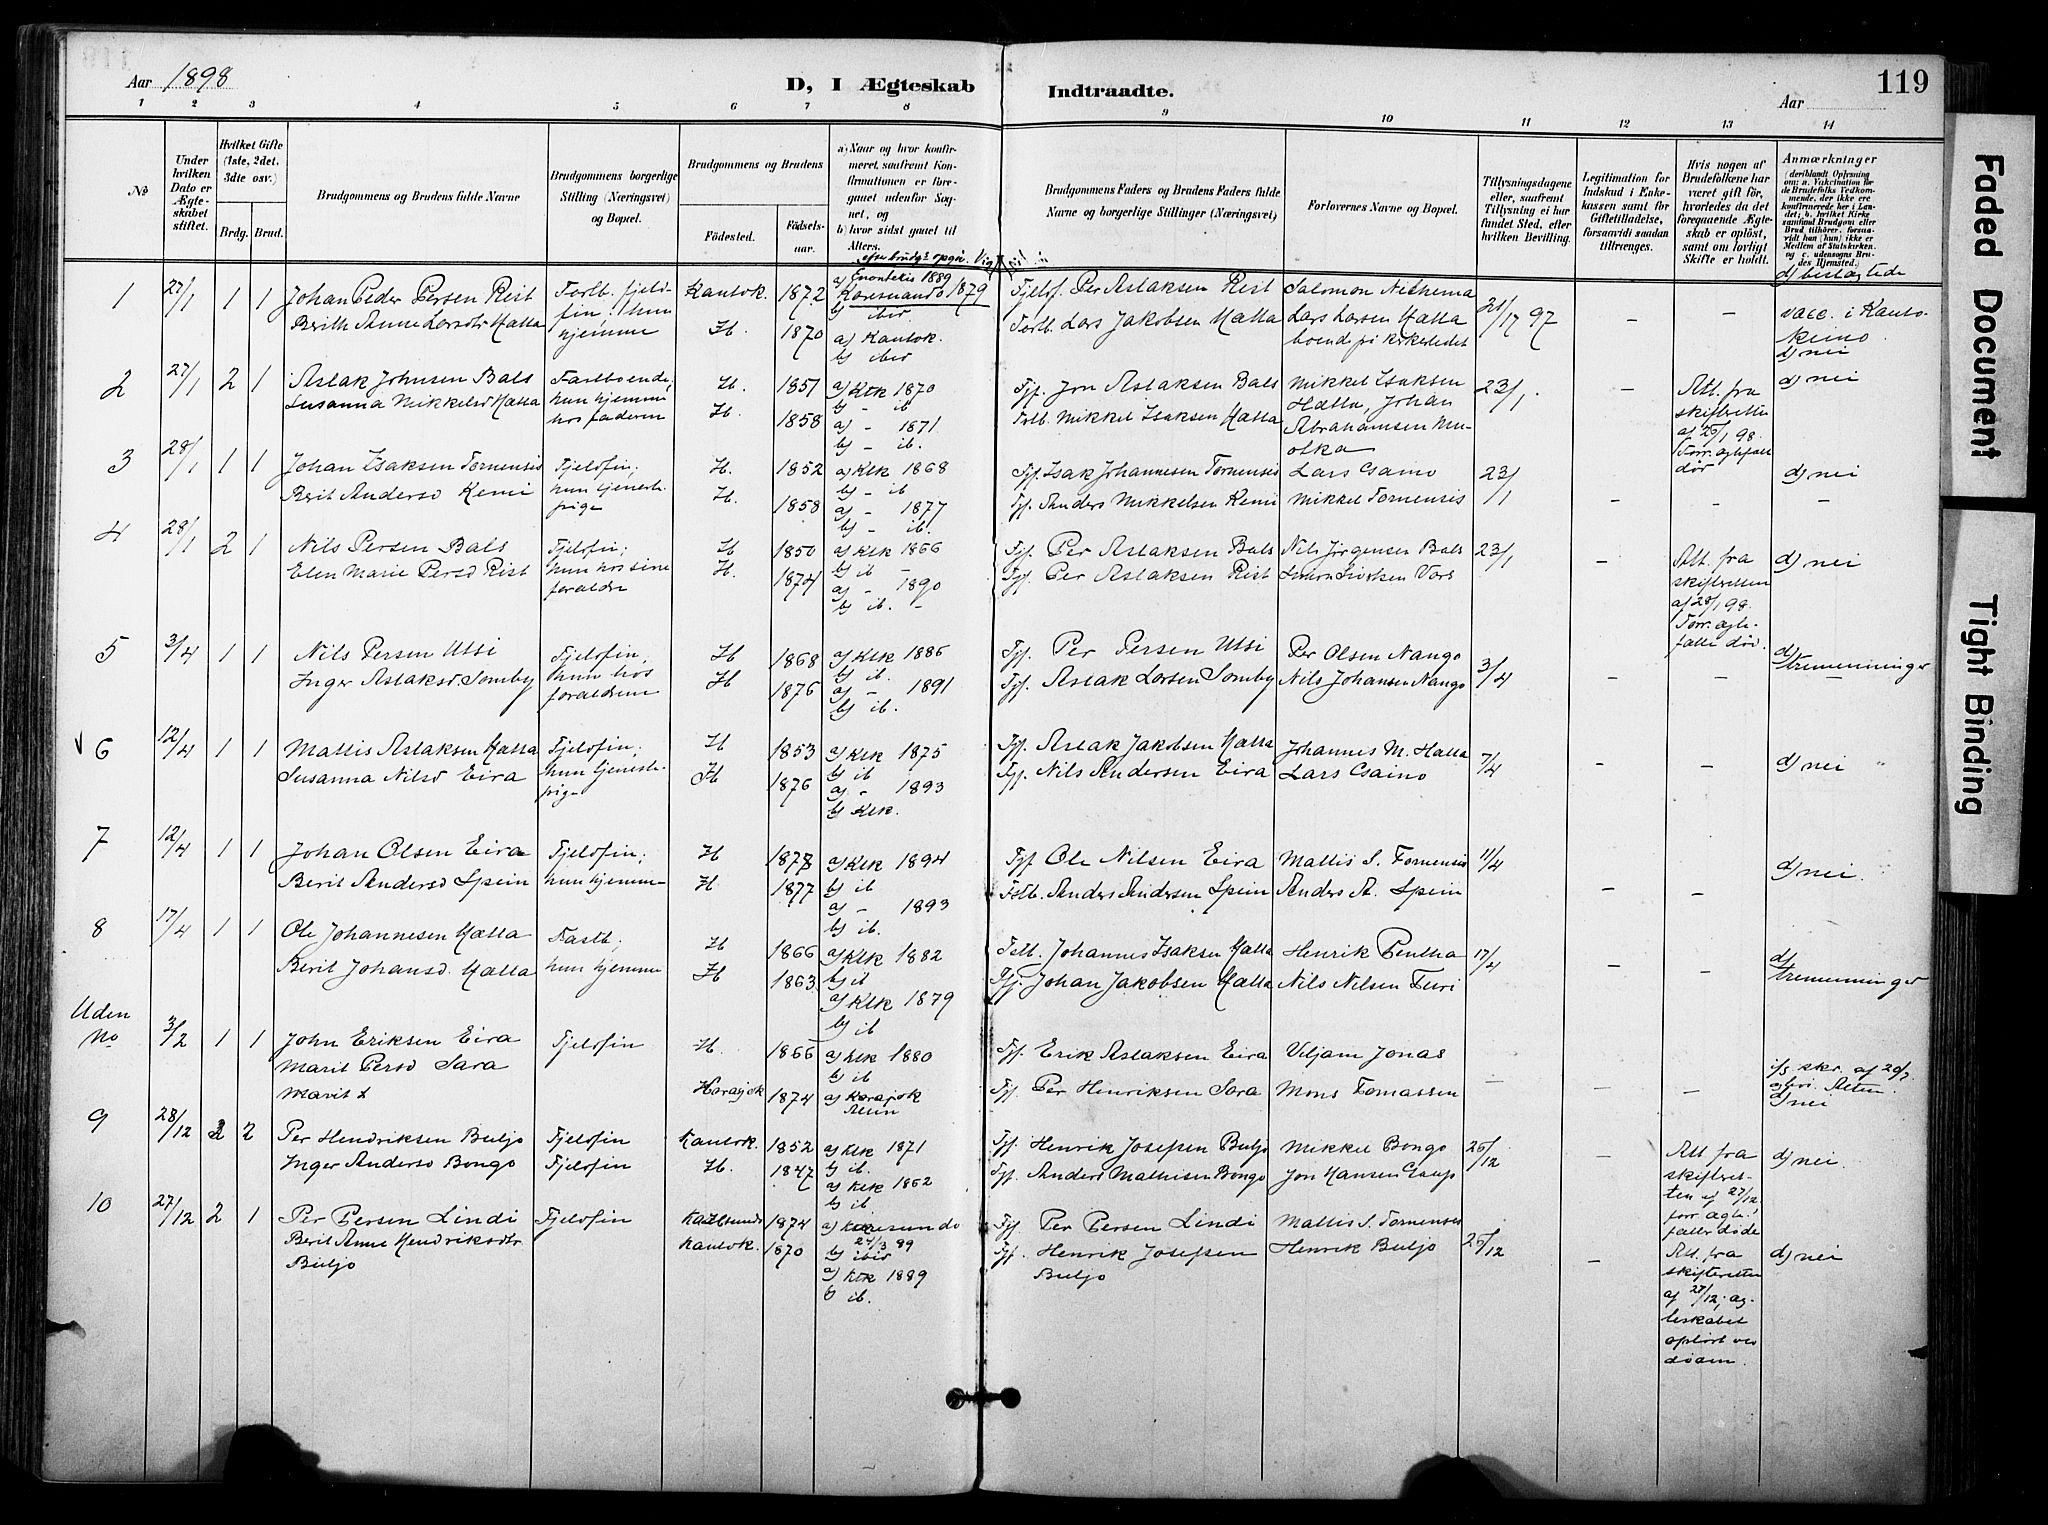 Aar 1898
D, I Ægteskab Indtraadte.
Aar
119
1 2 3 4 5 6 7 8 9 10 11 12 13 14
No
Under hvilken Dato er Ægteskabet stiftet.
Hvilket Gifte (1ste, 2det, 3dte osv.)
Brdg. Brud.
Brudgommens og Brudens fulde Navne
Brudgommens borgerlige Stilling (Næringsvei) og Bopæl.
Brudgommens og Brudens
Fødested. Fødselsaar.
a) Naar og hvor konfirmeret, saafremt Konfirmationen er foregaaet udenfor Sognet, og
b) hvor sidst gaaet til Alters.
Brudgommens Faders og Brudens Faders fulde Navne og borgerlige Stillinger (Næringsvei)
Forlovernes Navne og Bopæl.
Tillysningsdagene eller, saafremt Tillysning ei har fundet Sted, efter hvilken Bevilling.
Legitimation for Indskud i Enkekassen samt for Giftetilladelse, forsaavidt saadan tiltrænges.
Hvis nogen af Brudefolkene har været gift før, hvorledes da det foregaaende Ægteskab er opløst, samt om lovligt Skifte er holdt.
Anmærkninger (deriblandt Oplysning om: a. Vakcination for de Brudefolks Vedkommende, der ikke ere konfirmerede her i Landet; b. hvilket Kirkesamfund Brudgom eller Brud tilhører, forsaavidt han (hun) ikke er Medlem af Statskirken, og c. udensogns Brudes Hjemsted.)
d) beslægtede
1 27/1 1 1 Johan Peder Persen Rist Kautok. 1872 a) Enontekis 1889 Karesuando 1879 b) ibid Fjeldf. Per Aslaksen Rist Salomon Nikkema 21/17 97 – – vacc. i Kautokeino
Berith Anne Larsdtr Hætta hjemme H. 1870 a) Kautok. b) ibid Fastb. Lars Jakobsen Hætta Lars Larsen Hætta boende på kirkestedet d) nei
2 27/1 2 1 Aslak Johnsen Bals Fastboende; H. 1851 a) Ktk 1870 b) – ib Fjf. Jon Aslaksen Bals Mikkel Isaksen Hætta, Johan 23/1 – Att. fra skifteretten af 26/1 98. d) nei
Susanna Mikkelsd Hætta hun hjemme hos faderen H. 1858 a) – 1871 b) – ib. Fstb. Mikkel Isaksen Hætta Abrahamsen Muotka
3 28/1 1 1 Johan Isaksen Tornensis Fjeldfin; H. 1852 a) Ktk 1868 b) – ib Fjf. Isak Johannesen Tornensis Lars Gaino 23/1 – – d) nei
Berit Andersd Kemi hun tjenestepige H. 1858 a) – 1877 b) – ib. Fjf. Anders Mikkelsen Kemi Mikkel Tornensis –
4 28/1 2 1 Nils Persen Bals Fjeldfin; H 1850 a) Ktk 1866 b) ib – Fjf. Per Aslaksen Bals Nils Jörgensen Bals 23/1 – Att. fra skifteretten af 28/1 98. d) nei
Elen Marie Persd Rist hun hos sine foraldre H. 1874 a) – 1890 b) ib. – Fjf. Per Aslaksen Rist
5 3/4 1 1 Nils Persen Utsi Fjeldfin, H 1868 a) Ktk 1886 b) ib. Fjf. Per Persen Utsi Per Olsen Nango 3/4 – – d) tremenninger
Inger Aslaksd Somby hun hos foraldrene H 1876 a) – 1891 b) ib. Fjf. Aslak Larsen Somby Nils Johansen Nango –
6 12/4 1 1 Mattis Aslaksen Hætta Fjeldfin; H 1853 a) Ktk 1875 b) ib Fjf. Aslak Jakobsen Hætta Johannes M. Hætta 7/4 – – d) nei
Susanna Nilsd Eira hun tjenestepige H 1876 a) – 1893 b) Ktk. Fjf. Nils Andersen Eira Lars Gaino
7 12/4 1 1 Johan Olsen Eira Fjeldfin; H 1877 a) Ktk 1894 b) ib Fjf Ole Nilsen Eira Mattis S. Tornensis 11/4 – – d) nei.
Berit Andersd Spein hun hjemme H 1877 a) – 1893 b) ib. Fstb. Anders Andersen Spein Anders A. Spein
8 17/4 1 1 Ole Johannesen Hætta Fastb; H 1866 a) Ktk 1882 b) ib Fstb. Johannes Isaksen Hætta Henrik Pentha 17/4 – – d) tremenninger
Berit Johansd. Hætta hun hjemme H 1863 a) Ktk 1879 b) ib Fjf. Johan Jakobsen Hætta Nils Nilsen Turi
Uden No 3/2 1 1 John Eriksen Eira Fjeldfin H. 1866 a) Ktk 1880 b) ib Fjf. Erik Aslaksen Eira Viljam Jonas
Marit Persd Sara Karasjok 1874 a) Karasjok Fjf. Per Henriksen Sara Mons Tomassen – – – d) nei
Marit
9 28/12 2 2 Per Hendriksen Buljo Fjeldfin Kautok. 1852 a) Ktk 1871 b) ib. Fjf. Henrik Josefsen Buljo Mikkel Bongo 26/12 – Att fra skifteretten af 27/12, forr. ægtefæller døde d) nei.
Inger Andersd Bongo Fjeldfin H. 1847 a) Ktk 1862 b) ib. Fjf. Anders Mathisen Bongo Jon Hansen Gaup
10 27/12 2 1 Per Persen Lindi Fjeldfin 1874 a) Karesuando 24/3 89 b) ibid Fjf. Per Persen Lindi Mattis S. Tornensis 26/12 – Att. fra skifteretten af 27/12, ægteskabet opløst ved døden. d) nei
Berit Anne Hendriksdtr Buljo Kautok. 1870 a) Ktk 1889 b) ib. Fjf. Henrik Josefsen Buljo Henrik Buljo
Faded Document
Tight Binding